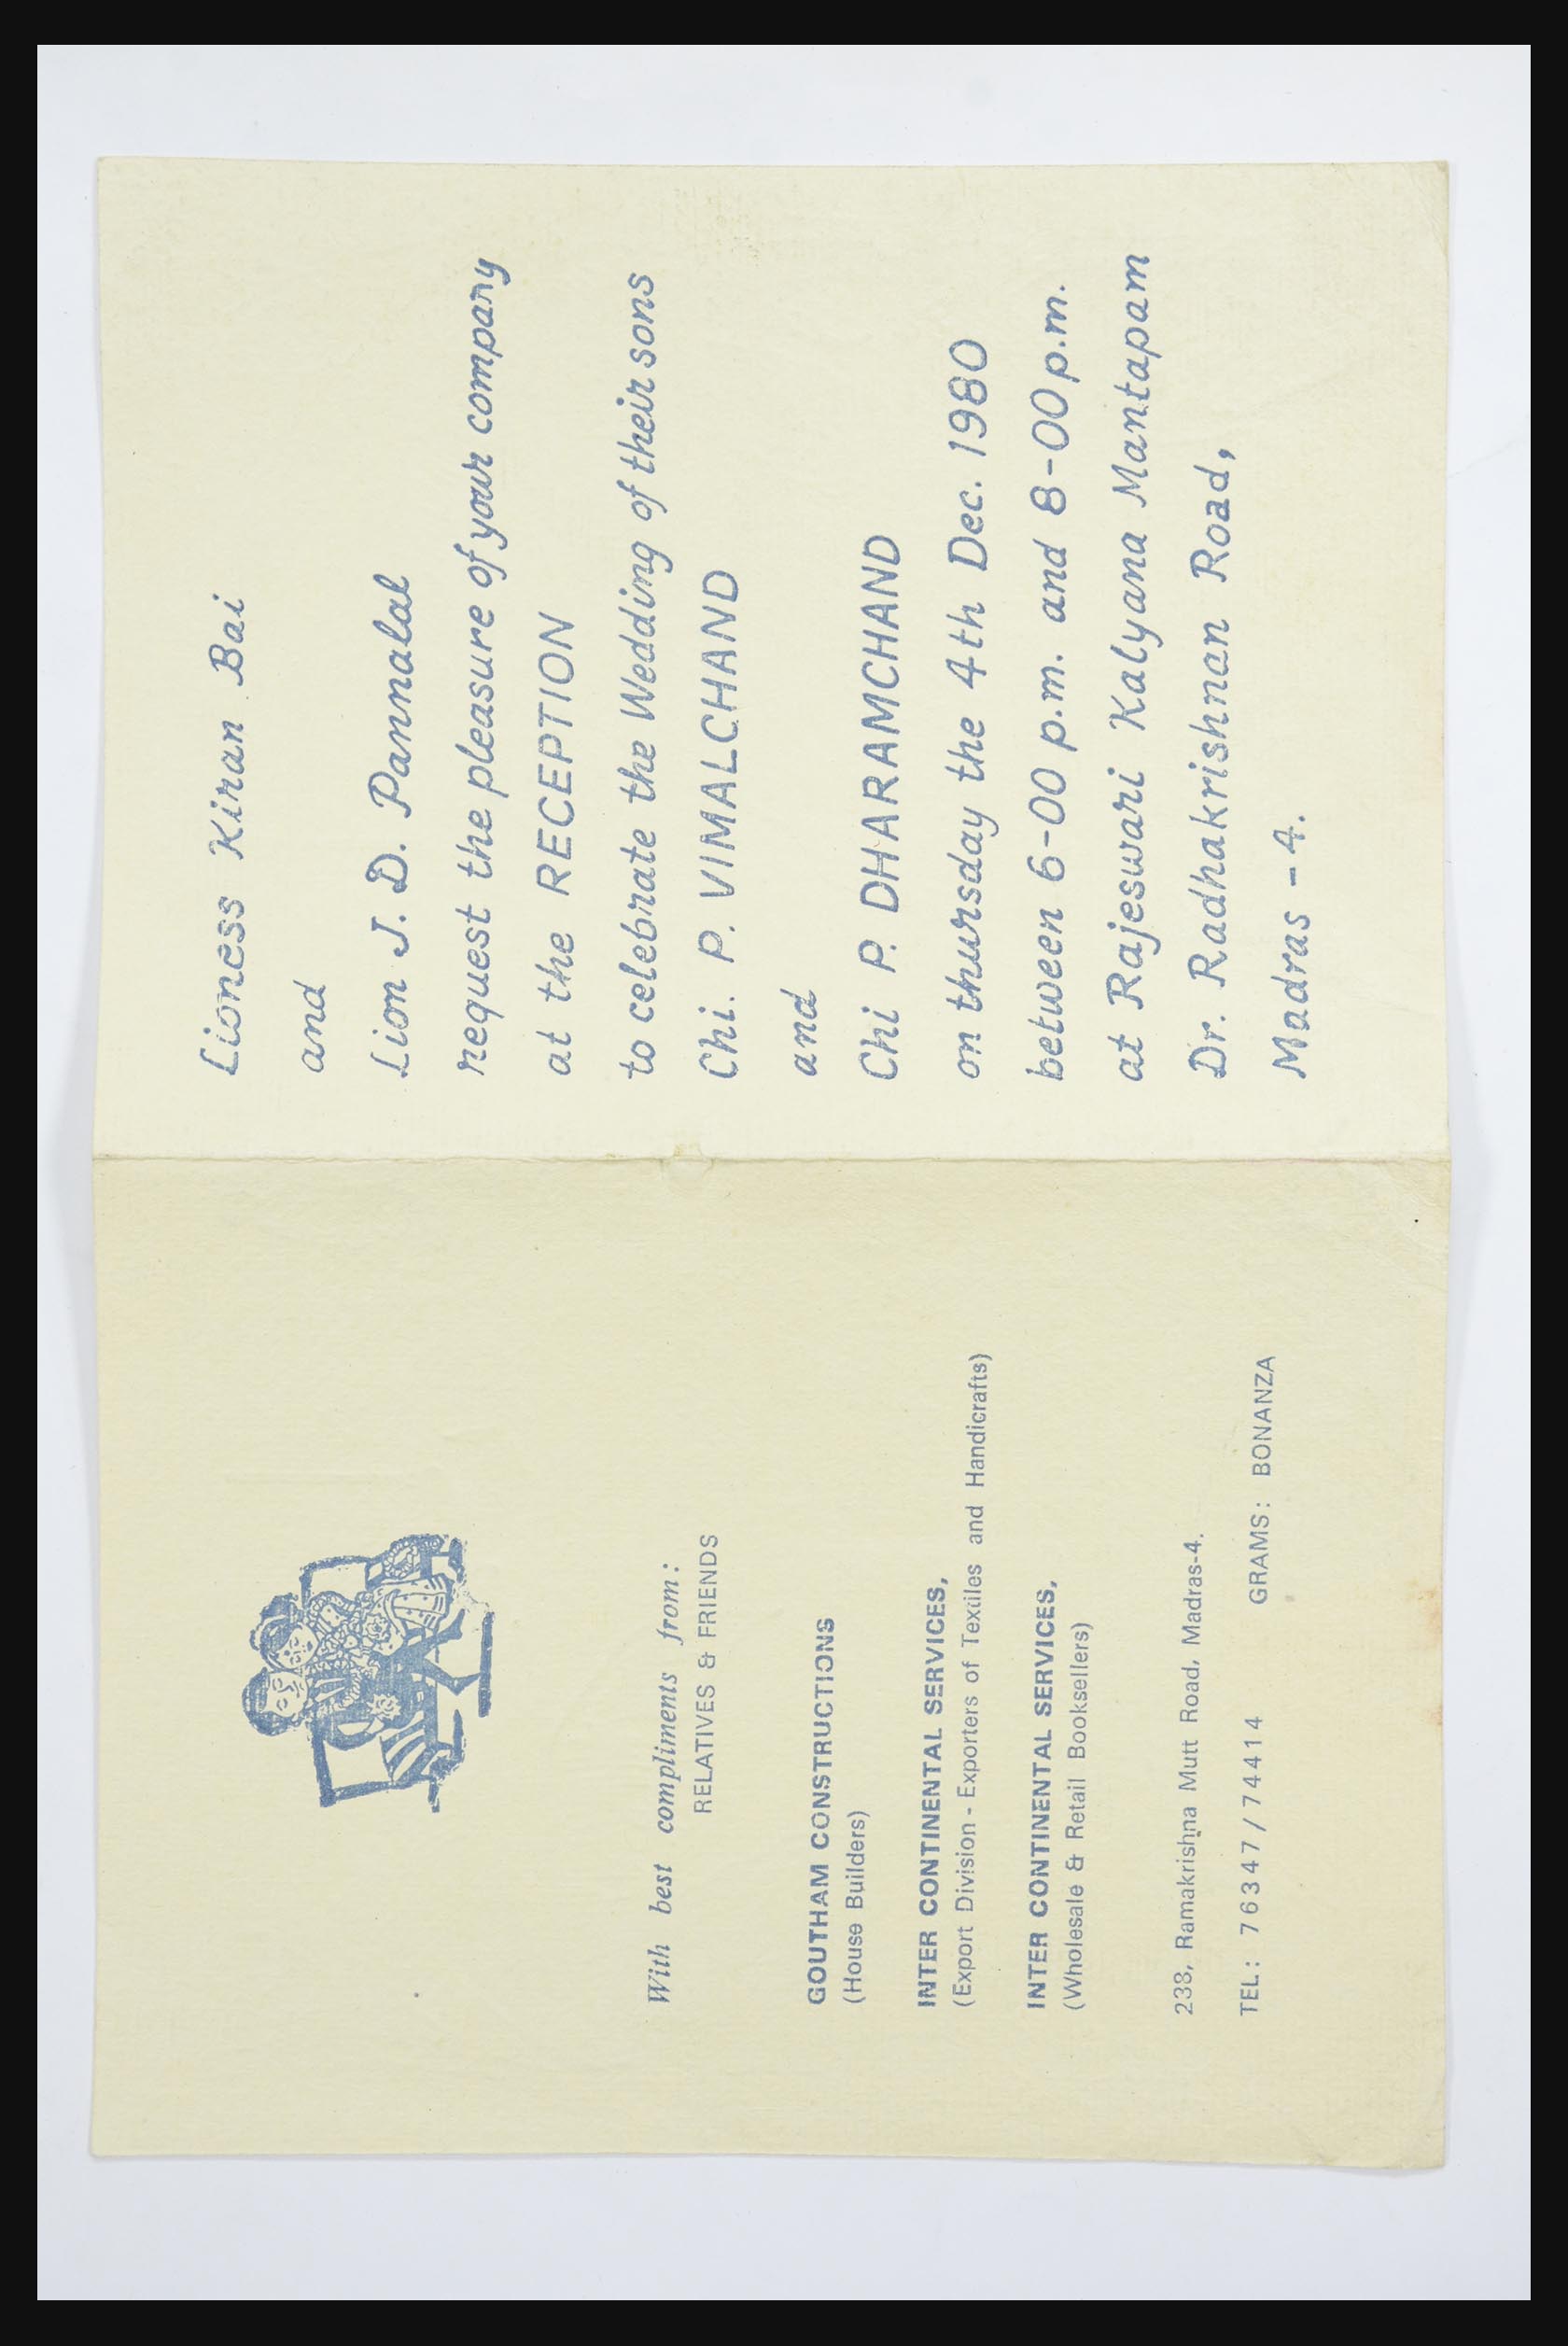 With best compliments from:
RELATIVES & FRIENDS
GOUTHAM CONSTRUCTIONS
(House Builders)
INTER CONTINENTAL SERVICES,
(Export Division - Exporters of Textiles and Handicrafts)
INTER CONTINENTAL SERVICES,
(Wholesale & Retail Booksellers)
238, Ramakrishna Mutt Road, Madras-4.
TEL: 76347/74414 GRAMS: BONANZA
Lioness Kiran Bai
and
Lion J. D. Pannalal
request the pleasure of your company
at the RECEPTION
to celebrate the Wedding of their sons
Chi. P. VIMALCHAND
and
Chi P. DHARAMCHAND
on thursday the 4th Dec. 1980
between 6-00 p.m. and 8-00 p.m.
at Rajeswari Kalyana Mantapam
Dr. Radhakrishnan Road,
Madras - 4.